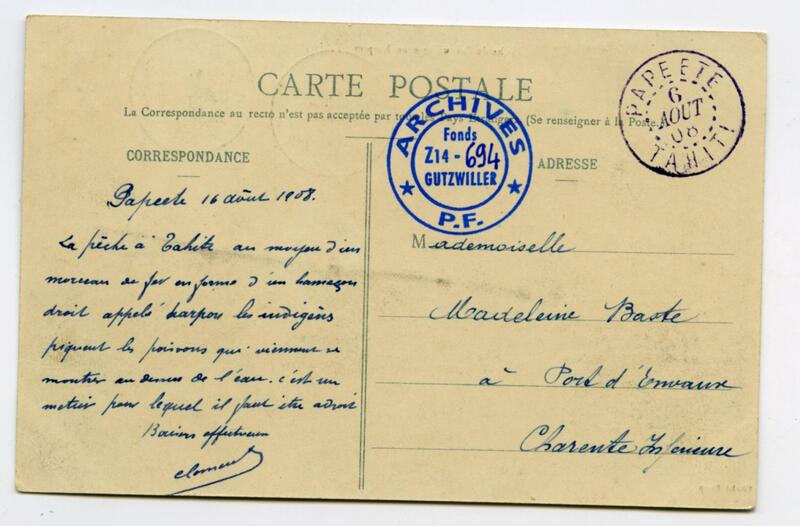 CARTE POSTALE
La Correspondance au recto n'est pas acceptée par tous les Pays Etrangers (Se renseigner à la Poste
CORRESPONDANCE
ADRESSE
PAPEETE
6
AOUT
08
TAHITI
ARCHIVES
Fonds
Z14 - 694
GUTZWILLER
P.F.
Papeete 16 août 1908.
La pêche à Tahiti au moyen d'un
morceau de fer en forme d'un hameçon
droit appelé harpon les indigèns
piquent les poissons qui viennent se
montrer au dessus de l'eau. c'est un
metier pour lequel il faut être adroit
Baisers affectueux
Mademoiselle
Madeleine Baste
à Port d'Envaux
Charente Inférieure